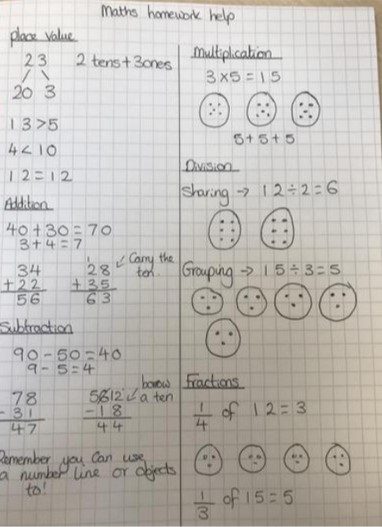 Maths homework help
place value
23 2 tens + 3ones
20 3
13>5
4<10
12=12
Addition
40+30=70
3+4=7
34
+22
56
1
28
+35
63
Carry the
ten.
Subtraction
90-50=40
9-5=4
78
-31
47
5612
-18
44
borrow
a ten
Remember you can use
a number line or objects
to!
Multiplication
3×5=15
5+5+5
Division
Sharing → 12÷2=6
Grouping → 15÷3=5
Fractions
1/4 of 12=3
1/3 of 15=5